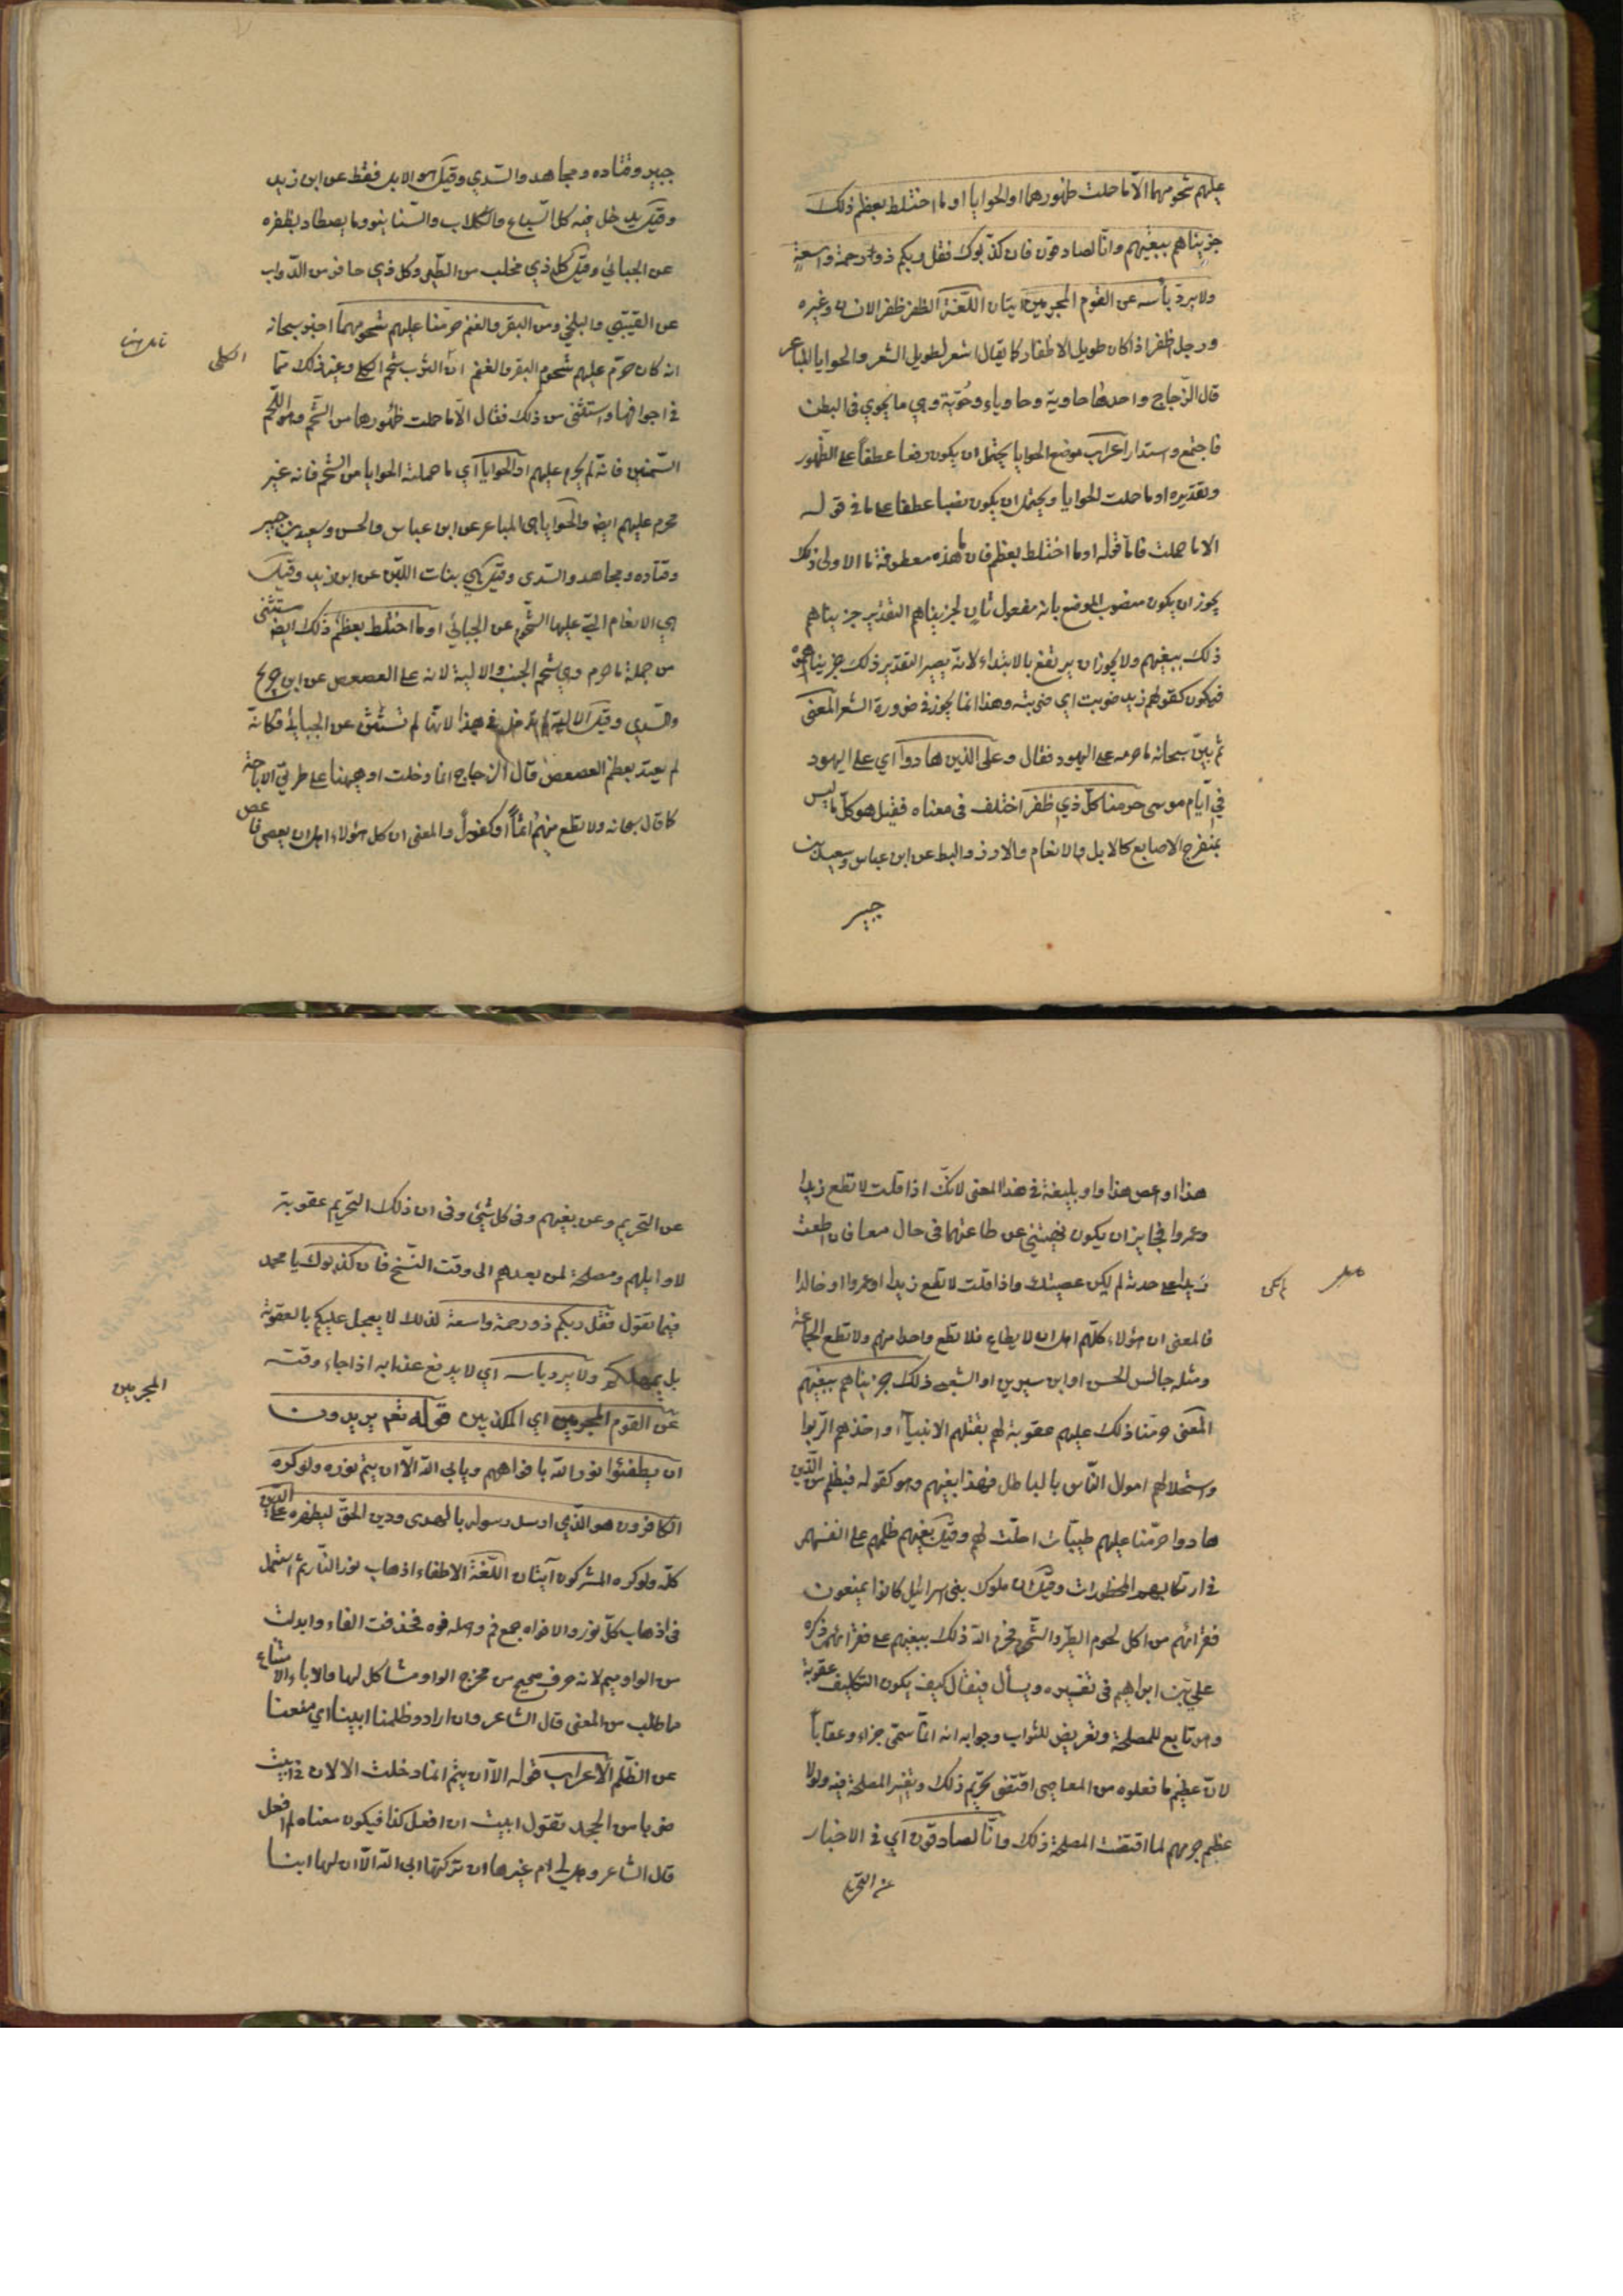 عليهم شحومهما الا ما حملت ظهورهما او الحوايا او ما اختلط بعظم ذلك
جزيناهم ببغيهم وانا لصادقون فان كذبوك فقل ربكم ذو رحمة واسعة
ولا يرد بأسه عن القوم المجرمين ايتان اللغة الظفر ظفر الانسان وغيره
ورجل اظفر اذا كان طويل الاظفار كما يقال اشعر لطويل الشعر والحوايا المباعر
قال الزجاج واحدها حاوية وحاوياء وحوية وهي ما يحوي في البطن
فاجتمع واستدار اعراب موضع الحوايا يحتمل ان يكون رفعا عطفا على الظهور
وتقديره او ما حملت الحوايا ويحتمل ان يكون نصبا عطفا على ما في قوله
الا ما حملت فاما قوله او ما اختلط بعظم فان ما هذه معطوفة ما الاولى ذلك
يجوز ان يكون منصوب الموضع بانه مفعول ثان لجزيناهم التقدير جزيناهم
ذلك ببغيهم ولا يجوز ان يرتفع بالابتداء لانه يصير التقدير ذلك جزيناهموه
فيكون كقولهم زيد ضربت اي ضربته وهذا انما يجوز في ضرورة الشعر المعنى
ثم بين سبحانه ما حرمه على اليهود فقال وعلى الذين هادوا اي على اليهود
في ايام موسى حرمنا كل ذي ظفر اختلف في معناه فقيل هو كل ما ليس
بمنفرج الاصابع كالابل والانعام والاوز والبط عن ابن عباس وسعيد بن
جبير
جبير وقتاده ومجاهد والسدي وقيل هو الابل فقط عن ابن زيد
وقيل يدخل فيه كل السباع والكلاب والسنانير وما يصطاد بظفره
عن الجبائي وقيل كل ذي مخلب من الطير وكل ذي حافر من الدواب
عن القتيبي والبلخي ومن البقر والغنم حرمنا عليهم شحومهما اخبر سبحانه
انه كان حرم عليهم شحوم البقر والغنم ان الثرب شحم الكلي وغير ذلك مما
الكلى
في اجوافها واستثنى من ذلك فقال الا ما حملت ظهورها من الشحم وهو اللحم
السمين فانه لم يحرم عليهم او الحوايا اي ما حملته الحوايا من الشحم فانه غير
محرم عليهم ايضا والحوايا هي المباعر عن ابن عباس والحسن وسعيد بن جبير
وقتاده ومجاهد والسدي وقيل هي بنات اللبن عن ابن زيد وقيل
هي الانعام التي عليها الشحوم عن الجبائي او ما اختلط بعظم ذلك ايضا مستثنى
من جملة ما حرم وهي شحم الجنب والالية لانه على العصعص عن ابن جريج
والسدي وقيل الالية لم تدخل في هذا لانها لم تستثن عن الجبائي فكانه
لم يعتد بعظم العصعص قال الزجاج انما دخلت او ههنا على طريق الاباحة
كما قال سبحانه ولا تطع منهم اثما او كفورا والمعنى ان كل هؤلاء اهل ان يعصى فاعص
هذا او اعص هذا واو بليغة في هذا المعنى لانك اذا قلت لا تطع زيدا
وعمروا فجايز ان يكون نهيتني عن طاعتهما في حال معا فان اطعت
زيدا على حدته لم يكن عصيتك واذا قلت لا تطع زيدا او عمروا او خالدا
فالمعنى ان هؤلاء كلهم اهل ان لا يطاع فلا تطع واحدا منهم ولا تطع الجماعة
ومثله جالس الحسن او ابن سيرين او الشعبي ذلك جزيناهم ببغيهم
المعنى حرمنا ذلك عليهم عقوبة لهم بقتلهم الانبياء واخذهم الربوا
واستحلالهم اموال الناس بالباطل فهذا بغيهم وهو كقوله فبظلم من الذين
هادوا حرمنا عليهم طيبات احلت لهم وقيل بغيهم ظلمهم على انفسهم
في ارتكابهم المحظورات وقيل ان ملوك بني اسرائيل كانوا يمنعون
فقرائهم من اكل لحوم الطير والشحوم فحرم الله ذلك ببغيهم على فقرائهم ذكره
علي بن ابراهيم في تفسيره ويسأل فيقال كيف يكون التكليف عقوبة
وهو تابع للمصلحة وتعريض للثواب وجوابه انه انما سمي جزاء وعقابا
لان عظيم ما فعلوه من المعاصي اقتضى تحريم ذلك وتغيير المصلحة فيه ولولا
عظم جرمهم لما اقتضت المصلحة ذلك وانا لصادقون اي في الاخبار
عن التحريم
عن التحريم وعن بغيهم وفي كل شيء وفي ان ذلك التحريم عقوبة
لاوايلهم ومصلحة لمن بعدهم الى وقت النسخ فان كذبوك يا محمد
فيما تقول فقل ربكم ذو رحمة واسعة لذلك لا يعجل عليكم بالعقوبة
بل يمهلكم ولا يرد باسه اي لا يدفع عذابه اذا جاء وقته
المجرمين
عن القوم المجرمين اي المكذبين قوله تعم يريدون
ان يطفئوا نور الله بافواههم ويابى الله الا ان يتم نوره ولو كره
الكافرون هو الذي ارسل رسوله بالهدى ودين الحق ليظهره على الدين
كله ولو كره المشركون آيتان اللغة الاطفاء اذهاب نور النار ثم استعمل
في اذهاب كل نور والافواه جمع فم واصله فوه فحذفت الهاء وابدلت
من الواو ميم لانه حرف صحيح من مخرج الواو مشاكل لها والاباء الامتناع
مما طلب من المعنى قال الشاعر وان ارادوا ظلمنا ابينا اي منعنا
عن الظلم الاعراب قوله الا ان يتم انما دخلت الا لان في ابيت
ضربا من الجحد تقول ابيت ان افعل كذا فيكون معناه لم افعل
قال الشاعر وهل لي ام غيرها ان تركتها ابى الله الا ان لها ابنا